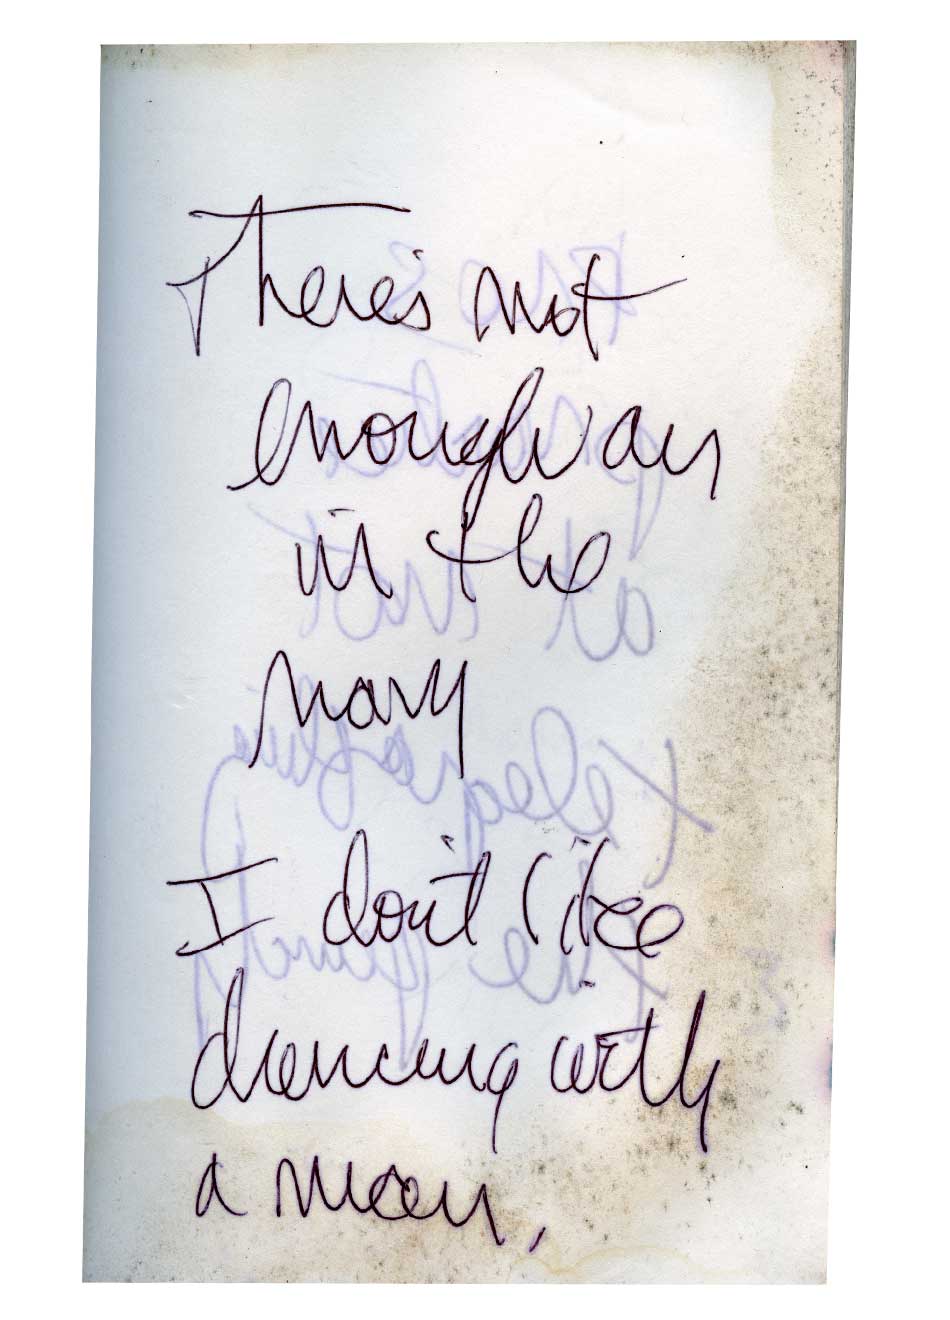 There's not
enough air
in the
navy
I don't like
dancing with
a man,